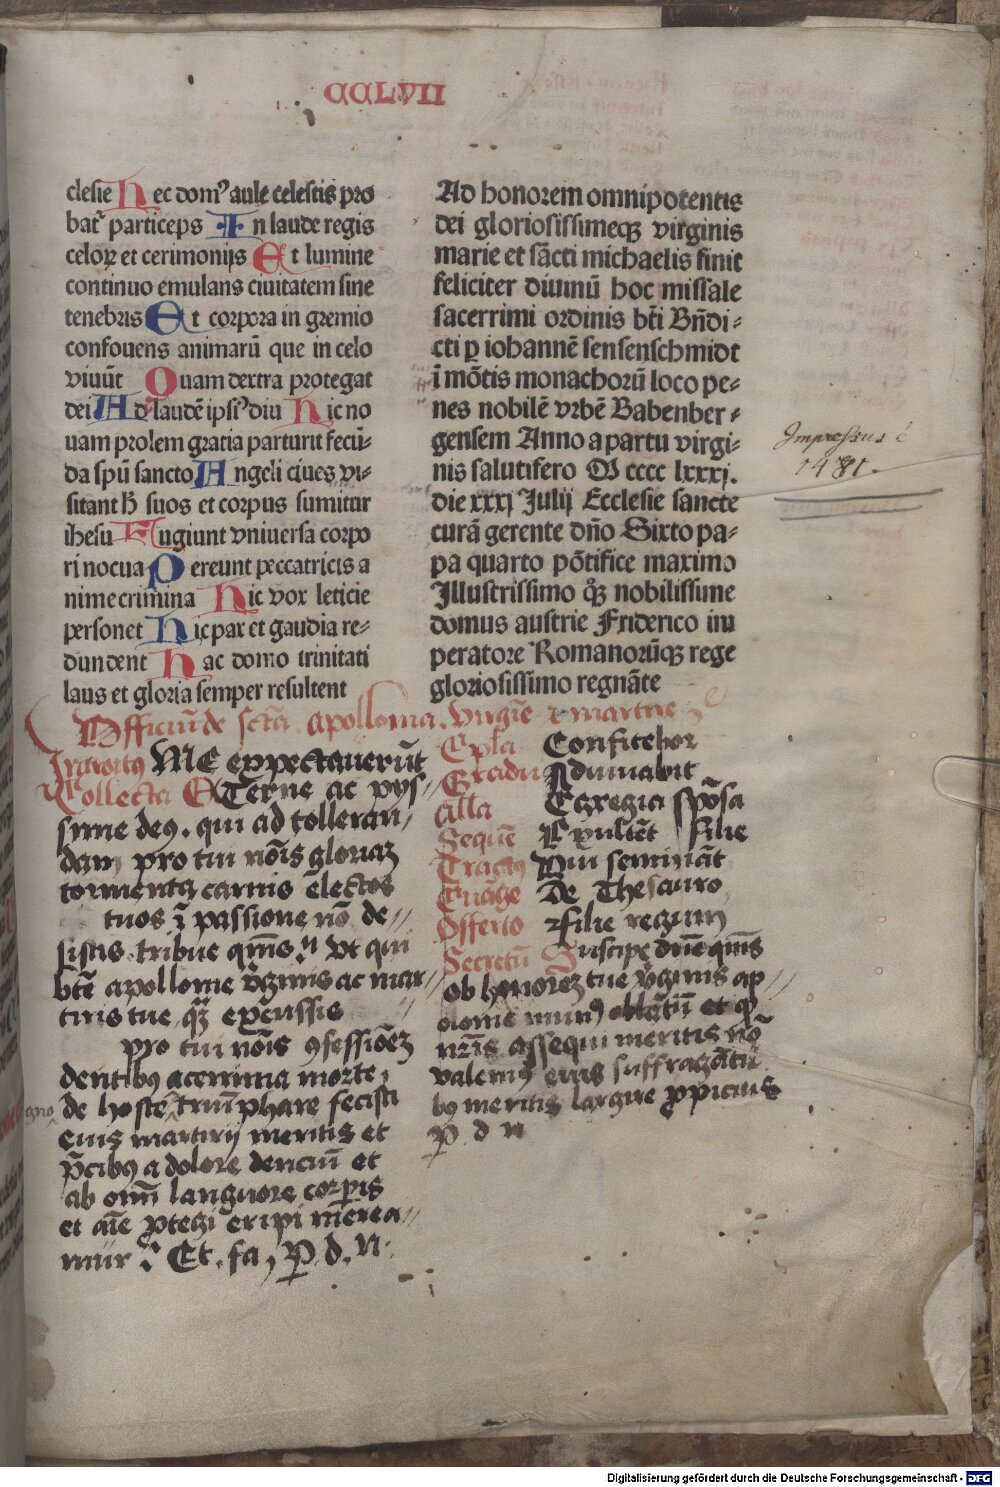 CCLVII
clesie Hec dom⁹ aule celestis pro
bat᷑ particeps In laude regis
celoꝝ et cerimonijs Et lumine
continuo emulans ciuitatem sine
tenebris Et corpora in gremio
confouens animarū que in celo
viuūt Quam dextra protegat
dei Ad laudē ipsi⁹ diu Hic no
uam prolem gratia parturit fecū-
da spū sancto Angeli ciues vi-
sitant h̄ suos et corpus sumitur
ihesu Fugiunt vniuersa corpo
ri nocua Pereunt peccatricis a
nime crimina Hic vox leticie
personet Hic pax et gaudia re-
dundent Hac domo trinitati
laus et gloria semper resultent
Ad honorem omnipotentis
dei gloriosissimeqꝫ virginis
marie et sācti michaelis finit
feliciter diuinū hoc missale
sacerrimi ordinis bt̄i Bn̄di-
cti ꝑ iohannē sensenschmidt
ī mōtis monachorū loco pe-
nes nobilē vrbē Babenber-
gensem Anno a partu virgi-
nis salutifero M cccc lxxxj.
die xxxj Julij Ecclesie sancte
curā gerente dn̄o Sixto pa-
pa quarto pōtifice maximo
Illustrissimo qꝫ nobilissime
domus austrie Friderico im
peratore Romanorūqꝫ rege
gloriosissimo regnāte
Impressus ē
1481.
Officiū de sctā apollonia. virgīe et martire
Introitus ME exppectauerūt
Collecta ETerne ac pijs-
sime deus. qui ad tolleran/
dam pro tui nōis gloriaꝫ
tormenta carnis electos
tuos ī passione nō de//
sistis. tribue qm̄s. vt qui
btē apollonie vgīnis ac mar//
tiris tue, excussis
pro tui nōis ꝯfessiōeꝫ
dentibꝰ acerrima morte,
gno
de hoste triūphare fecisti
eius martirij meritis et
p̄cibꝰ a dolore denciū et
ab omī languore corꝑis
et aīe ꝓtegi eripi merea//
mur. Et. fa, P. d. n.
Epla Confitebor
Gradu Adiuuabit
Alla Egregia spōsa
Sequē Exultēt filie
Tractꝰ Qui semināt
Euāge De Thesauro
Offerto Filie regum
Secretū Suscipe dn̄e qm̄s
ob honoreꝫ tue vgīnis ap//
olonie munꝰ oblatū et qd
nr̄is assequi meritis nō
valemꝰ eius suffragātī
bꝰ meritis largire ꝓpicius
P d n
Digitalisierung gefördert durch die Deutsche Forschungsgemeinschaft - DFG